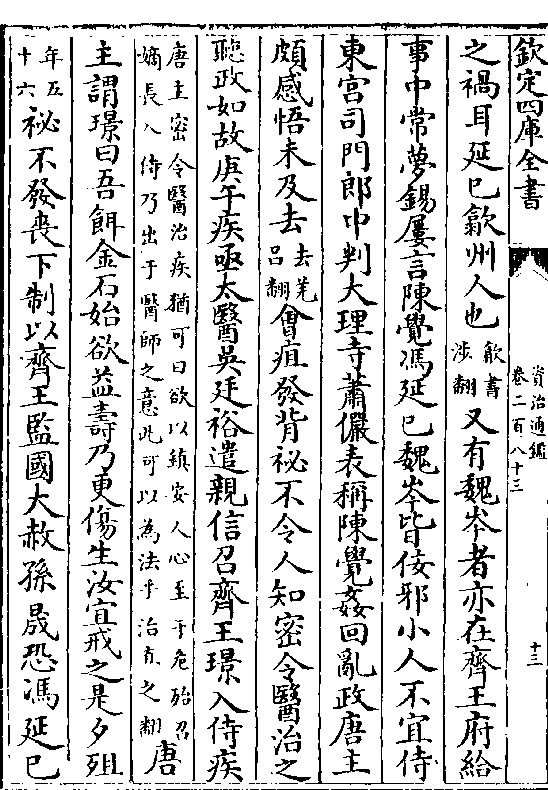 欽定四庫全書
資治通鑑
卷二百八十三
十三
之禍耳延巳歙州人也歙書涉翻又有魏岑者亦在齊王府給
事中常夢錫屢言陳覺馮延巳魏岑皆佞邪小人不宜侍
東宮司門郎中判大理寺蕭儼表稱陳覺姦回亂政唐主
頗感悟未及去去羌呂翻會疽發背祕不令人知密令醫治之
聽政如故庚午疾亟太醫吳廷裕遣親信召齊王璟入侍疾
唐主密令醫治疾猶可曰欲以鎮安人心至于危殆召嫡長入侍乃出于醫師之意此可以為法乎治直之翻唐
主謂璟曰吾餌金石始欲益壽乃更傷生汝宜戒之是夕殂
年五十六祕不發喪下制以齊王監國大赦孫晟恐馮延巳